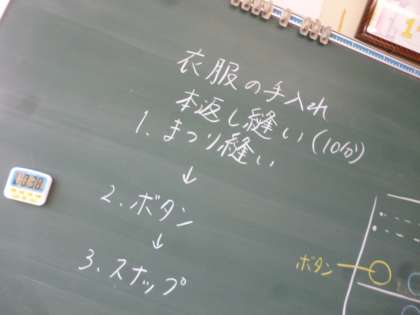 衣服の手入れ
本返し縫い(10分)
1. まつり縫い
↓
2. ボタン
↓
3. スナップ
ボタン